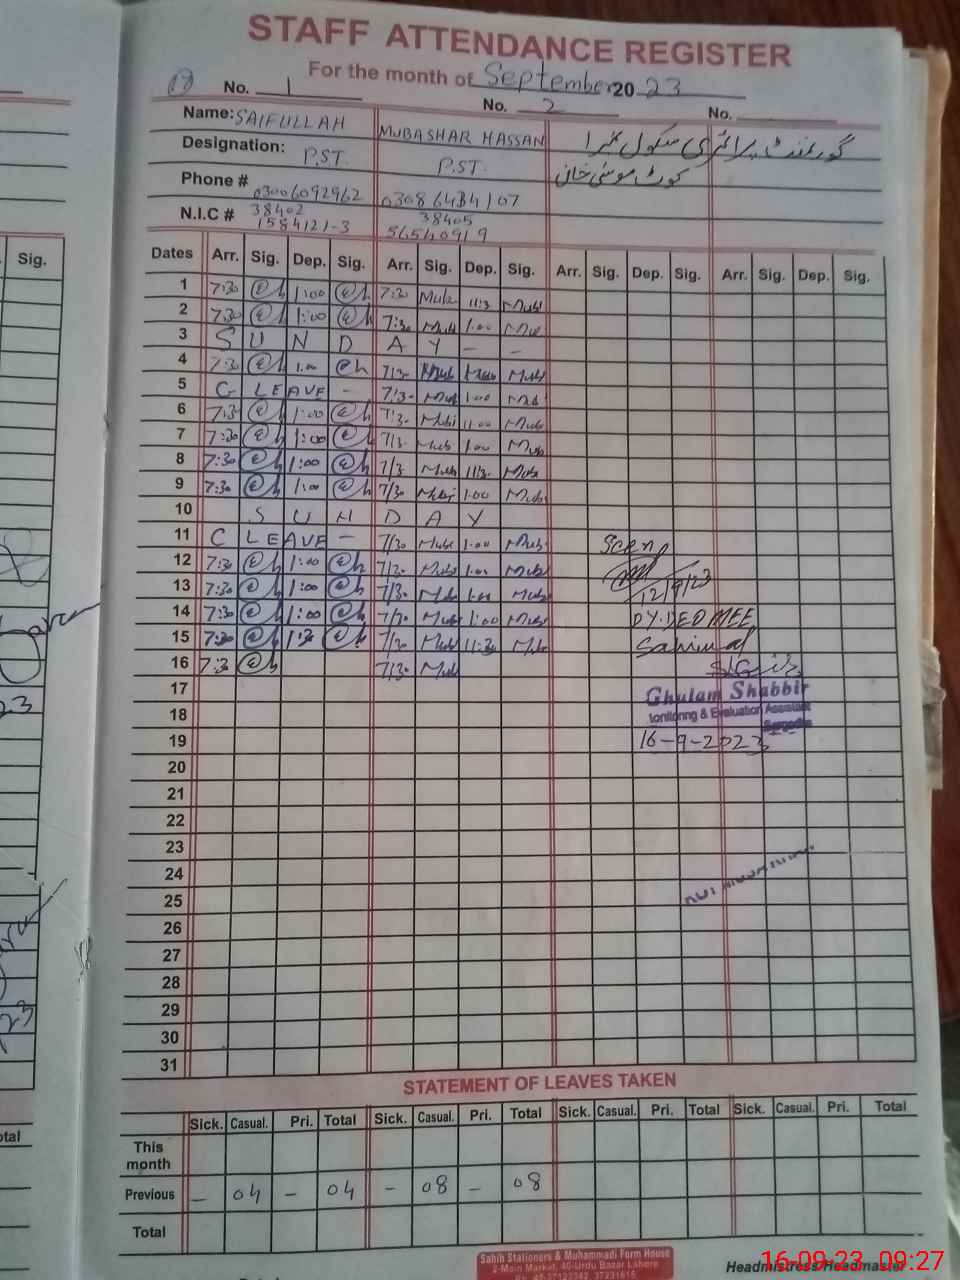 STAFF ATTENDANCE REGISTER
For the month of September 20 23
17 No. 1 No. 2 No.
Name: SAIFULLAH MUBASHAR HASSAN گورنمنٹ پرائمری سکول
Designation: P.ST. P.ST. کوٹ موسیٰ خان
Phone # 03006092962 03086434107
N.I.C # 38402 38405
1584121-3 56540919
Sig.
Dates Arr. Sig. Dep. Sig. Arr. Sig. Dep. Sig. Arr. Sig. Dep. Sig. Arr. Sig. Dep. Sig.
1 7:30 1:00 7:30 Mub 11:3 Mub
2 7:30 1:00 7:30 Mub 1:00 Mub
3 S U N D A Y - -
4 7:30 1:00 7/30 Mub Mub
5 C LEAVE - 7/30 Mub 1:00 Mub
6 7:30 1:00 7/30 Mub 11:00 Mub
7 7:30 1:00 7/30 Mub 1:00 Mub
8 7:30 1:00 7/3 Mub 11:30 Mub
9 7:30 1:00 7/30 Mub 1:00 Mub
10 S U N D A Y
11 C LEAVE - 7/30 Mub 1:00 Mub Seen
12 7:30 1:00 7/30 Mub 1:00 Mub
13 7:30 1:00 7/30 Mub 1:00 Mub 12/9/23
14 7:30 1:00 7/30 Mub 1:00 Mub DY.DEO MEE
15 7:30 1:30 7/30 Mub 11:30 Mub Sahiwal
16 7:30 7/30 Mub
17 Ghulam Shabbir
18 Monitoring & Evaluation Assistant
Sargodha
19 16-9-2023
20
21
22
23
24
25
26
27
28
29
30
31
STATEMENT OF LEAVES TAKEN
Sick. Casual. Pri. Total Sick. Casual. Pri. Total Sick. Casual. Pri. Total Sick. Casual. Pri. Total
This
month
Previous - 04 - 04 - 08 - 08
Total
Sahib Stationers & Muhammadi Form House
2-Main Market, 40-Urdu Bazar Lahore
Headmistress/Headmaster
16-09-23 09:27